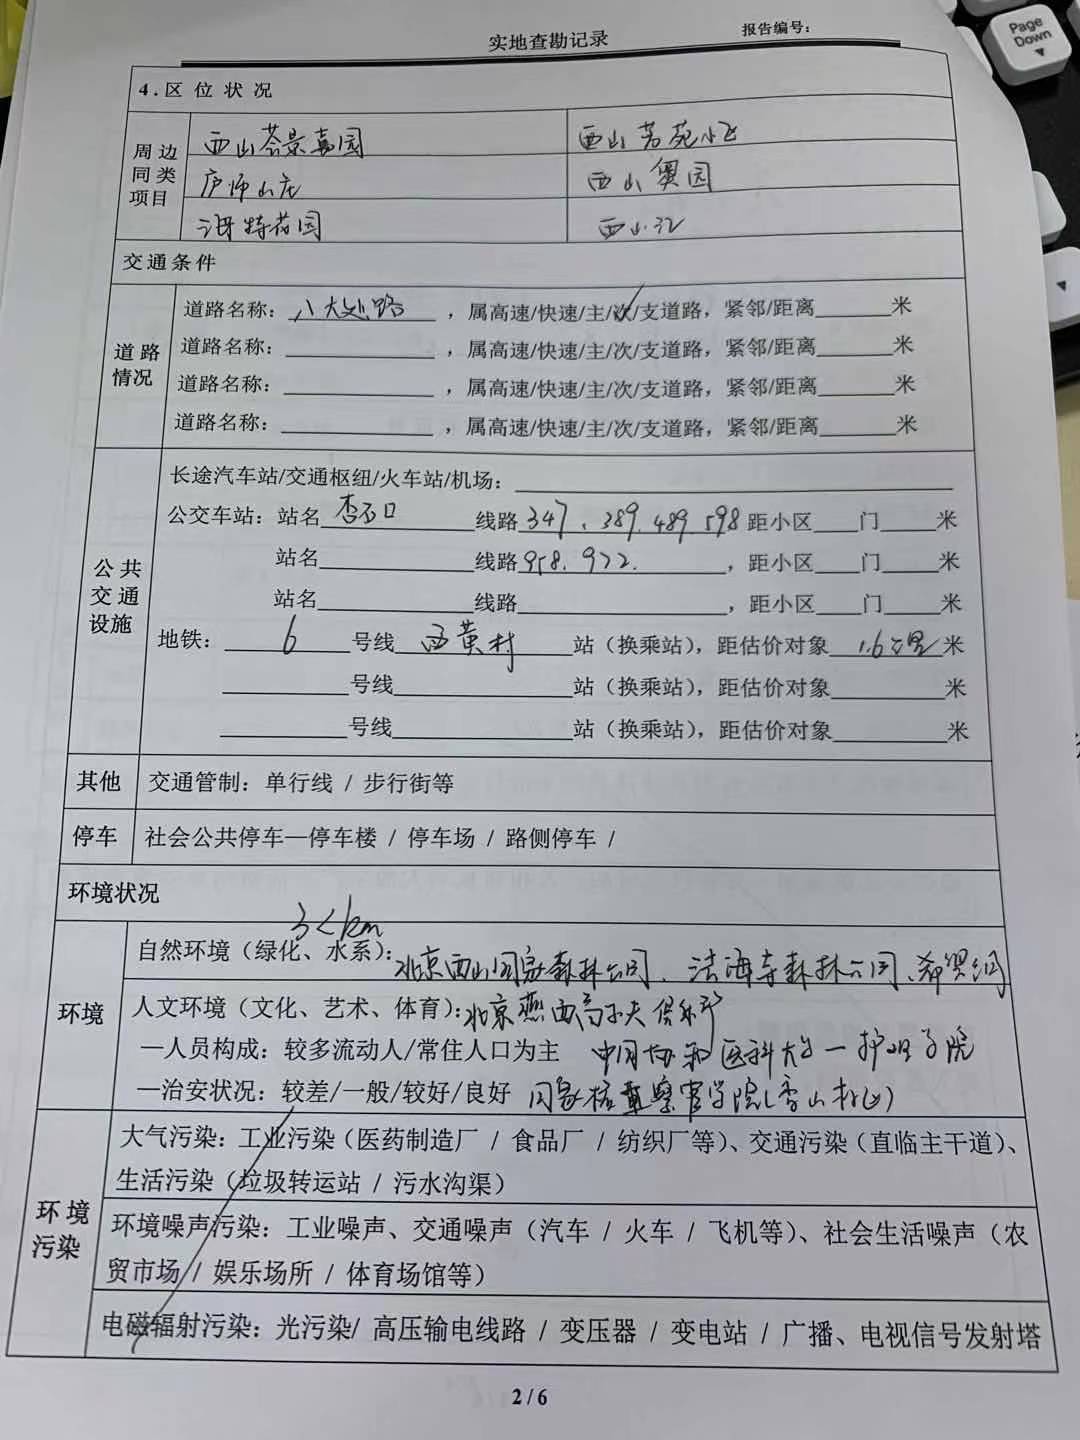 实地查勘记录
报告编号：
4.区位状况
周边同类项目
西山荟景嘉园
西山芳苑小区
庐师山庄
西山奥园
海特花园
西山
交通条件
道路情况
道路名称：八大处路，属高速/快速/主/次/支道路，紧邻/距离______米
道路名称：____________，属高速/快速/主/次/支道路，紧邻/距离______米
道路名称：____________，属高速/快速/主/次/支道路，紧邻/距离______米
道路名称：____________，属高速/快速/主/次/支道路，紧邻/距离______米
公共交通设施
长途汽车站/交通枢纽/火车站/机场：
公交车站：站名杏石口线路347、389.489.598距小区____门____米
站名____________线路958.972.，距小区____门____米
站名____________线路____________，距小区____门____米
地铁：6号线西黄村站（换乘站），距估价对象1.6公里米
________号线____________站（换乘站），距估价对象________米
________号线____________站（换乘站），距估价对象________米
其他
交通管制：单行线 / 步行街等
停车
社会公共停车—停车楼 / 停车场 / 路侧停车 /
环境状况
3<km
环境
自然环境（绿化、水系）：北京西山国家森林公园、法海寺森林公园、希望公园
人文环境（文化、艺术、体育）：北京燕西高尔夫俱乐部
—人员构成：较多流动人/常住人口为主 中国协和医科大学—护理学院
—治安状况：较差/一般/较好/良好 国家检察官学院（香山校区）
环境污染
大气污染：工业污染（医药制造厂 / 食品厂 / 纺织厂等）、交通污染（直临主干道）、
生活污染（垃圾转运站 / 污水沟渠）
环境噪声污染：工业噪声、交通噪声（汽车 / 火车 / 飞机等）、社会生活噪声（农
贸市场 / 娱乐场所 / 体育场馆等）
电磁辐射污染：光污染/ 高压输电线路 / 变压器 / 变电站 / 广播、电视信号发射塔
2 / 6
Page
Down